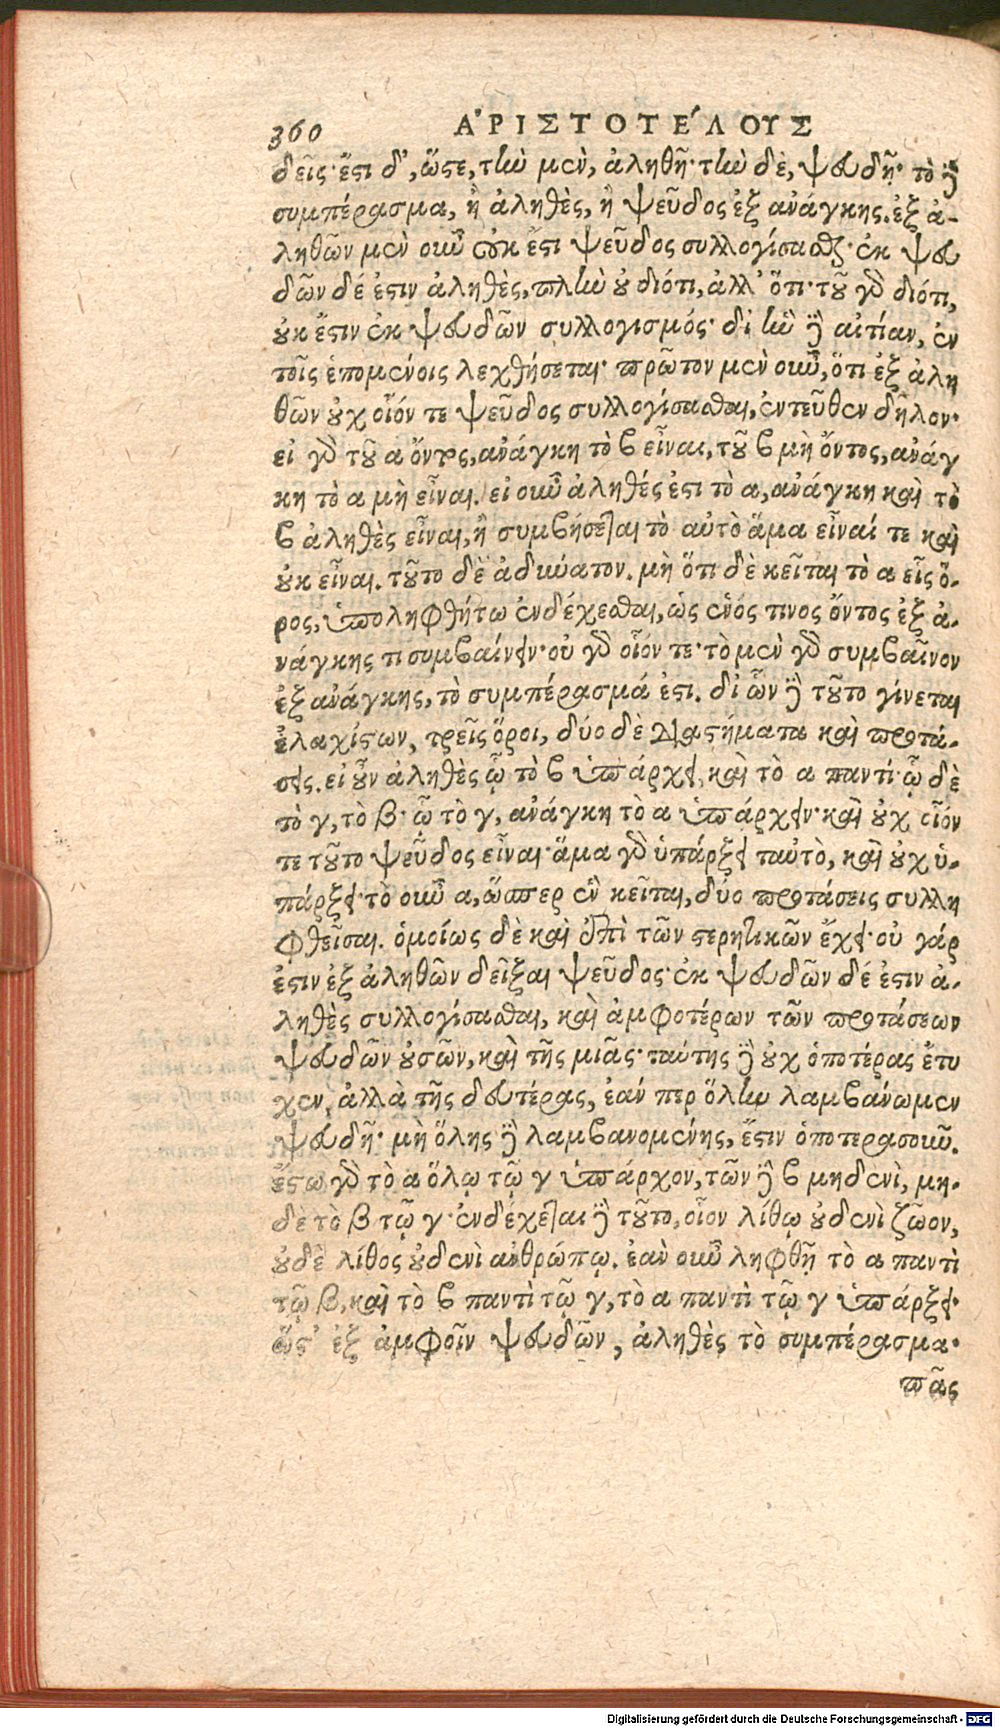 360 ἈΡΙΣΤΟΤΈΛΟΥΣ
δεῖς· ἔστι δ᾽, ὥστε, τὴν μὲν, ἀληθῆ· τὴν δὲ, ψευδῆ· τὸ δὲ
συμπέρασμα, ἢ ἀληθὲς, ἢ ψεῦδος ἐξ ἀνάγκης. ἐξ ἀ-
ληθῶν μὲν οὖν οὐκ ἔστι ψεῦδος συλλογίσασθαι· ἐκ ψευ
δῶν δέ ἐστιν ἀληθὲς, πλὴν οὐ διότι, ἀλλ᾽ ὅτι· τοῦ γὰρ διότι,
οὐκ ἔστιν ἐκ ψευδῶν συλλογισμός· δι᾽ ἣν δὲ αἰτίαν, ἐν
τοῖς ἑπομένοις λεχθήσεται· πρῶτον μὲν οὖν, ὅτι ἐξ ἀλη
θῶν οὐχ οἷόν τε ψεῦδος συλλογίσασθαι, ἐντεῦθεν δῆλον·
εἰ γὰρ τοῦ α ὄντος, ἀνάγκη τὸ β εἶναι, τοῦ β μὴ ὄντος, ἀνάγ
κη τὸ α μὴ εἶναι. εἰ οὖν ἀληθές ἐστι τὸ α, ἀνάγκη καὶ τὸ
β ἀληθὲς εἶναι, ἢ συμβήσεται τὸ αὐτὸ ἅμα εἶναί τε καὶ
οὐκ εἶναι. τοῦτο δὲ ἀδύνατον. μὴ ὅτι δὲ κεῖται τὸ α εἷς ὅ-
ρος, ὑποληφθήτω ἐνδέχεσθαι, ὡς ἑνός τινος ὄντος ἐξ ἀ-
νάγκης τι συμβαίνειν· οὐ γὰρ οἷόν τε· τὸ μὲν γὰρ συμβαῖνον
ἐξ ἀνάγκης, τὸ συμπέρασμά ἐστι. δι᾽ ὧν δὲ τοῦτο γίνεται
ἐλαχίστων, τρεῖς ὅροι, δύο δὲ διαστήματα καὶ προτά-
σεις. εἰ οὖν ἀληθὲς ᾧ τὸ β ὑπάρχει, καὶ τὸ α παντί· ᾧ δὲ
τὸ γ, τὸ β· ᾧ τὸ γ, ἀνάγκη τὸ α ὑπάρχειν· καὶ οὐχ οἷόν
τε τοῦτο ψεῦδος εἶναι· ἅμα γὰρ ὑπάρξει ταὐτὸ, καὶ οὐχ ὑ-
πάρξει· τὸ οὖν α, ὥσπερ ἓν κεῖται, δύο προτάσεις συλλη
φθεῖσαι. ὁμοίως δὲ καὶ ἐπὶ τῶν στερητικῶν ἔχει· οὐ γάρ
ἐστιν ἐξ ἀληθῶν δεῖξαι ψεῦδος· ἐκ ψευδῶν δέ ἐστιν ἀ-
ληθὲς συλλογίσασθαι, καὶ ἀμφοτέρων τῶν προτάσεων
ψευδῶν οὐσῶν, καὶ τῆς μιᾶς· ταύτης δὲ οὐχ ὁποτέρας ἔτυ
χεν, ἀλλὰ τῆς δευτέρας, ἐάν περ ὅλην λαμβάνωμεν
ψευδῆ· μὴ ὅλης δὲ λαμβανομένης, ἔστιν ὁποτερασοῦν.
ἔστω γὰρ τὸ α ὅλῳ τῷ γ ὑπάρχον, τῶν δὲ β μηδενὶ, μη-
δὲ τὸ β τῷ γ· ἐνδέχεται δὲ τοῦτο, οἷον λίθῳ οὐδενὶ ζῶον,
οὐδὲ λίθος οὐδενὶ ἀνθρώπῳ. ἐὰν οὖν ληφθῇ τὸ α παντὶ
τῷ β, καὶ τὸ β παντὶ τῷ γ, τὸ α παντὶ τῷ γ ὑπάρξει·
ὥστ᾽ ἐξ ἀμφοῖν ψευδῶν, ἀληθὲς τὸ συμπέρασμα·
πᾶς
Digitalisierung gefördert durch die Deutsche Forschungsgemeinschaft - DFG